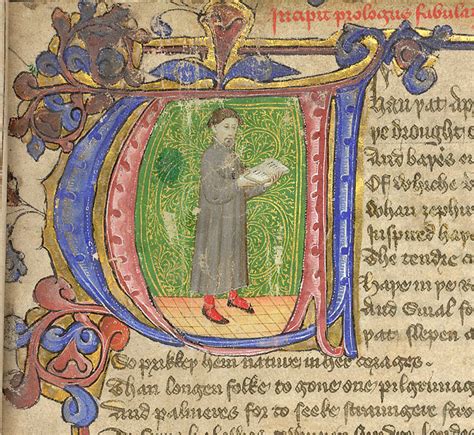 Incipit prologus fabula
Whan þat Ap
þe drought
And baþed
Of whiche
Whan zephir
Inspired haþ
The tendre c
Haþ in þe
And smal fo
þat slepen
So prikkeþ hem nature in her corages
Than longen folke to gone one pilgrimag
And palmeres for to seeke straungere